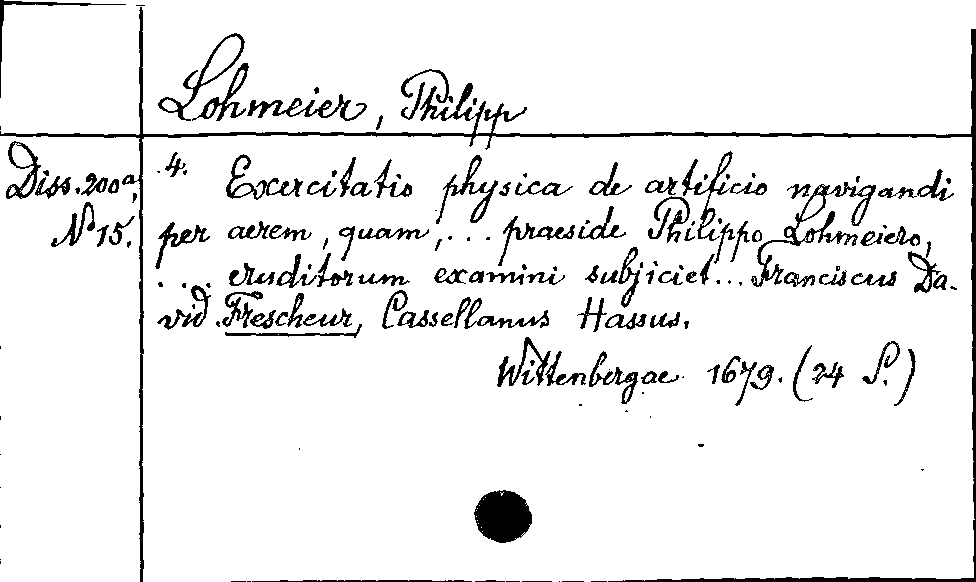 Lohmeier, Philipp
Diss. 200a,
No 15.
4. Exercitatio physica de artificio navigandi
per aerem, quam, ... praeside Philippo Lohmeiero,
... eruditorum examini subjiciet... Franciscus Da-
vid Frescheur, Cassellanus Hassus.
Wittenbergae 1679. (24 S.)